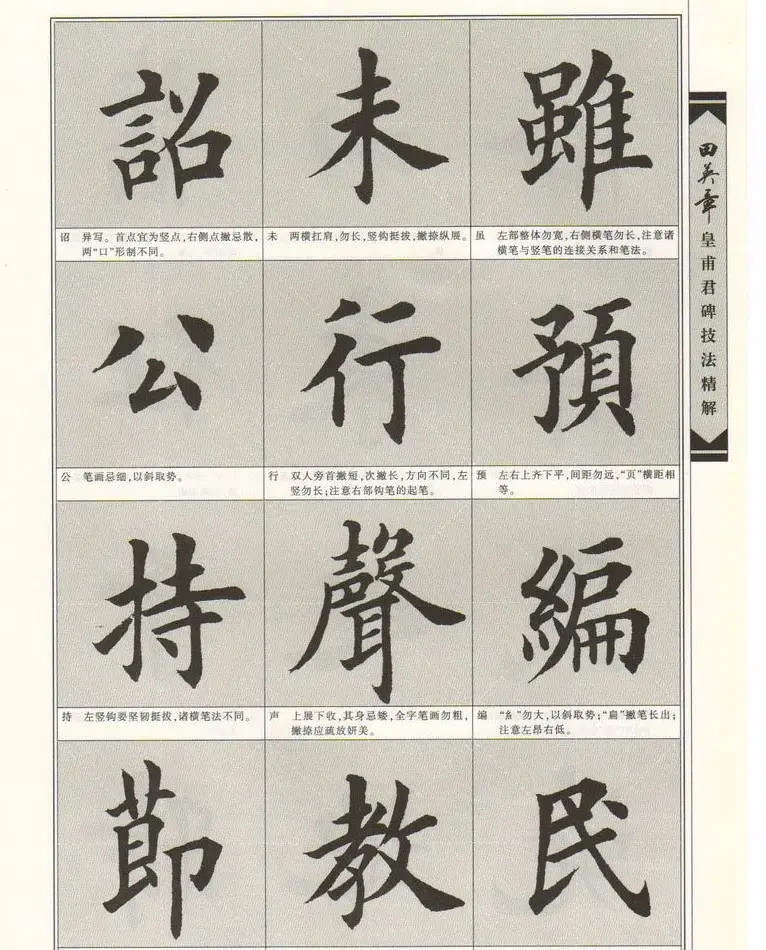 詔 未 雖
诏 异写。首点宜为竖点,右侧点撇忌散,
两“口”形制不同。
未 两横扛肩,勿长,竖钩挺拔,撇捺纵展。
虽 左部整体勿宽,右侧横笔勿长,注意诸
横笔与竖笔的连接关系和笔法。
公 行 預
公 笔画忌细,以斜取势。
行 双人旁首撇短,次撇长,方向不同,左
竖勿长;注意右部钩笔的起笔。
预 左右上齐下平,间距勿远,“页”横距相
等。
持 聲 編
持 左竖钩要坚韧挺拔,诸横笔法不同。
声 上展下收,其身忌矮,全字笔画勿粗,
撇捺应疏放妍美。
编 “糹”勿大,以斜取势;“扁”撇笔长出;
注意左昂右低。
莭 教 民
田英章皇甫君碑技法精解